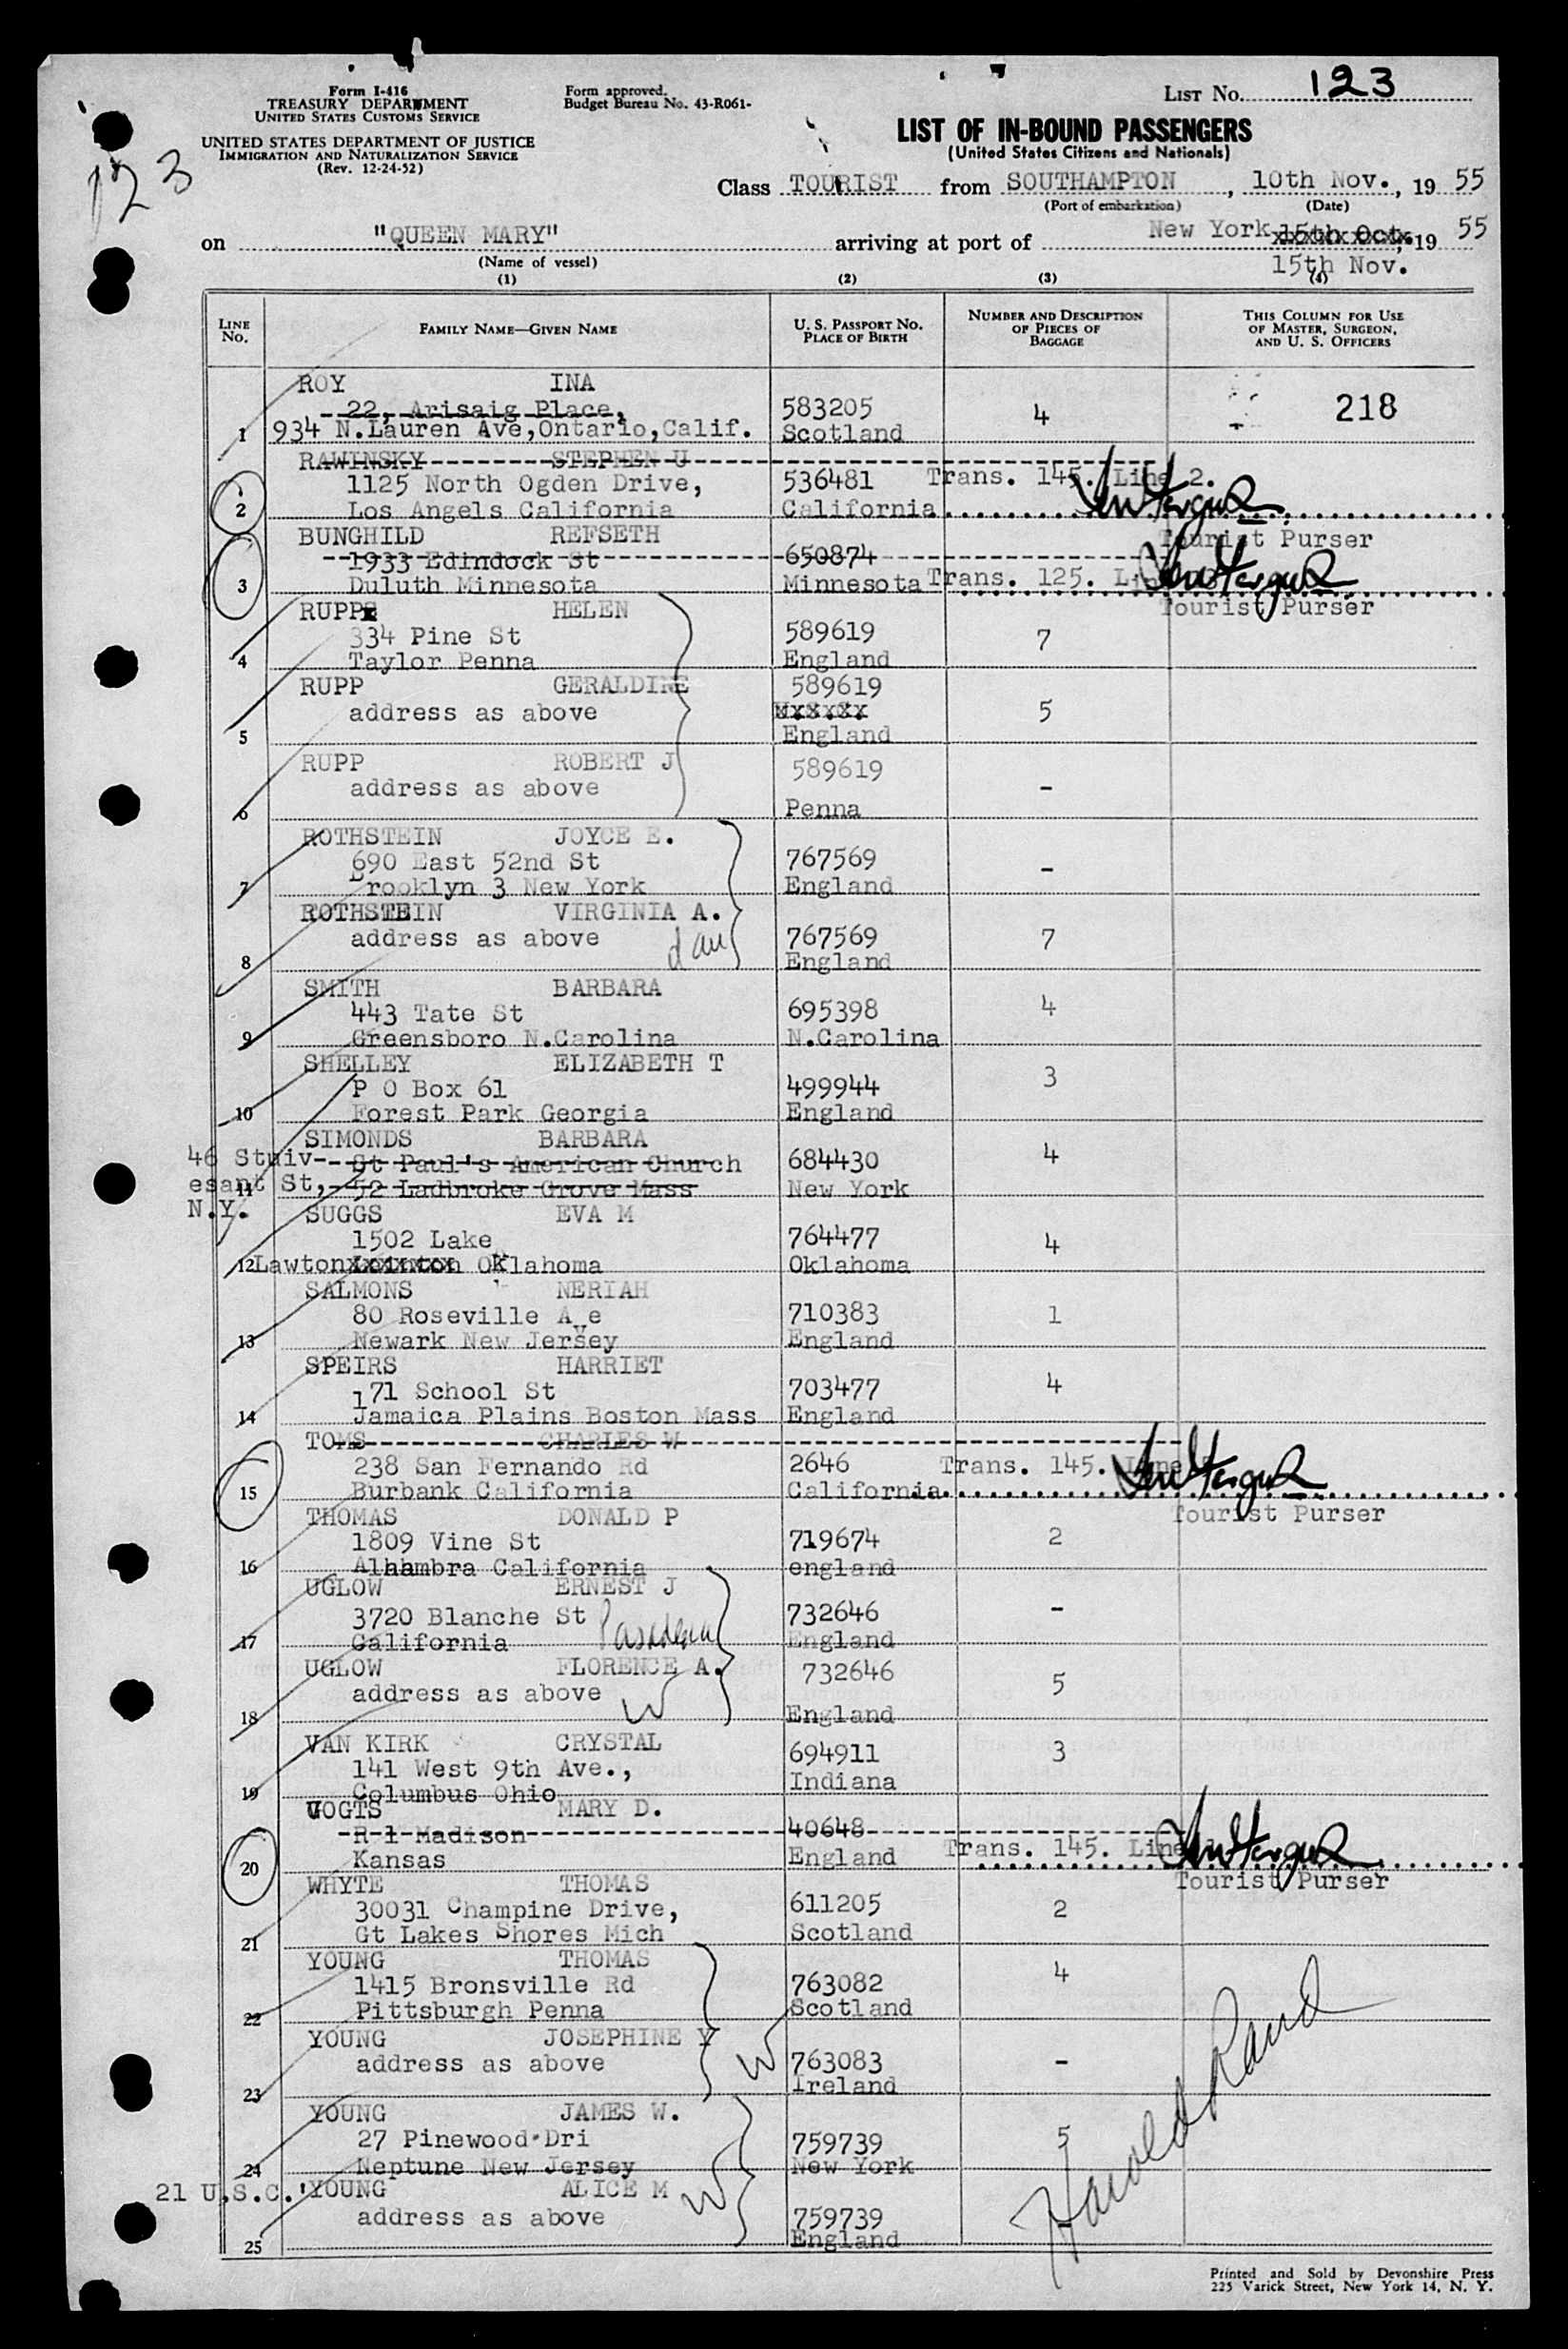 Form I-416
TREASURY DEPARTMENT
UNITED STATES CUSTOMS SERVICE
UNITED STATES DEPARTMENT OF JUSTICE
IMMIGRATION AND NATURALIZATION SERVICE
(Rev. 12-24-52)
Form approved.
Budget Bureau No. 43-R061-
LIST NO. 123
123
LIST OF IN-BOUND PASSENGERS
(United States Citizens and Nationals)
Class TOURIST from SOUTHAMPTON, 10th Nov., 19 55
(Port of embarkation) (Date)
on "QUEEN MARY" arriving at port of New York 15th Oct. 19 55
(Name of vessel) 15th Nov.
(1) (2) (3) (4)
LINE NO. FAMILY NAME—GIVEN NAME U. S. PASSPORT NO. PLACE OF BIRTH NUMBER AND DESCRIPTION OF PIECES OF BAGGAGE THIS COLUMN FOR USE OF MASTER, SURGEON, AND U. S. OFFICERS
ROY INA
22, Arisaig Place, 583205 4 218
1 934 N.Lauren Ave,Ontario,Calif. Scotland
RAWINSKY STEPHEN U
1125 North Ogden Drive, 536481 Trans. 145. Line 2.
2 Los Angels California California
Tourist Purser
BUNGHILD REFSETH
1933 Edindock St 650874
3 Duluth Minnesota Minnesota Trans. 125.
Tourist Purser
RUPP HELEN
334 Pine St 589619 7
4 Taylor Penna England
RUPP GERALDINE 589619
address as above 5
5 England
RUPP ROBERT J 589619
address as above -
6 Penna
ROTHSTEIN JOYCE E.
690 East 52nd St 767569 -
7 Brooklyn 3 New York England
ROTHSTEIN VIRGINIA A.
address as above dau 767569 7
8 England
SMITH BARBARA
443 Tate St 695398 4
9 Greensboro N.Carolina N.Carolina
SHELLEY ELIZABETH T
P O Box 61 499944 3
10 Forest Park Georgia England
SIMONDS BARBARA
46 Stuiv- St Paul's American Church 684430 4
11 esant St, 52 Ladbroke Grove Mass New York
N.Y.
SUGGS EVA M
1502 Lake 764477 4
12 Lawton Oklahoma Oklahoma
SALMONS NERIAH
80 Roseville Ave 710383 1
13 Newark New Jersey England
SPEIRS HARRIET
171 School St 703477 4
14 Jamaica Plains Boston Mass England
TOMS CHARLES W
238 San Fernando Rd 2646 Trans. 145. Line
15 Burbank California California
Tourist Purser
THOMAS DONALD P
1809 Vine St 719674 2
16 Alhambra California england
UGLOW ERNEST J
3720 Blanche St Pasadena 732646 -
17 California England
UGLOW FLORENCE A. 732646
address as above W 5
18 England
VAN KIRK CRYSTAL
141 West 9th Ave., 694911 3
19 Columbus Ohio Indiana
VOGTS MARY D.
R 1 Madison 40648
20 Kansas England Trans. 145. Line
Tourist Purser
WHYTE THOMAS
30031 Champine Drive, 611205 2
21 Gt Lakes Shores Mich Scotland
YOUNG THOMAS
1415 Bronsville Rd 763082 4
22 Pittsburgh Penna Scotland
YOUNG JOSEPHINE Y
address as above W 763083 -
23 Ireland
YOUNG JAMES W.
27 Pinewood Dri 759739 5
24 Neptune New Jersey New York
21 U.S.C.' YOUNG ALICE M W
address as above 759739
25 England
Harold Rand
Printed and Sold by Devonshire Press
225 Varick Street, New York 14, N. Y.